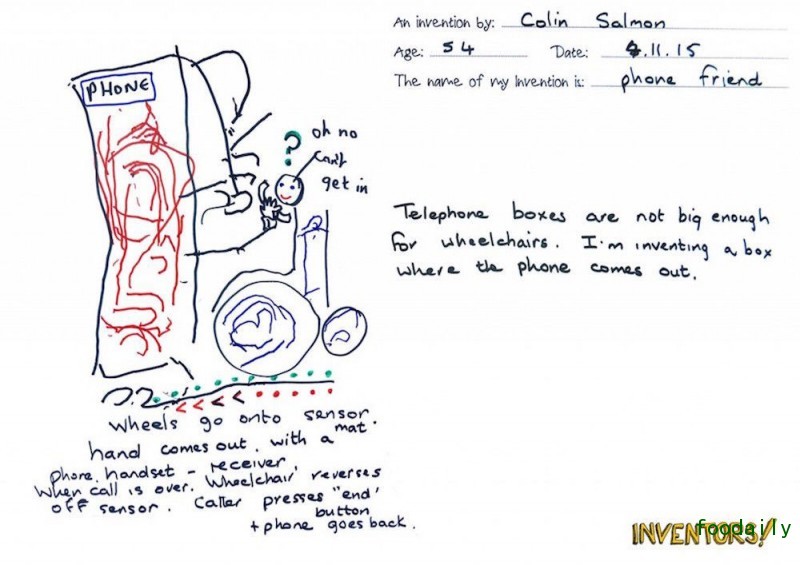 An invention by: Colin Salmon
Age: 54 Date: 4.11.15
The name of my invention is: phone friend
PHONE
? oh no
Can't
get in
Telephone boxes are not big enough
for wheelchairs. I'm inventing a box
where the phone comes out.
wheels go onto sensor
mat.
hand comes out. with a
phone. handset - receiver
When call is over. Wheelchair reverses
off sensor. Caller presses "end'
button
+ phone goes back.
INVENTORS!
foodaily